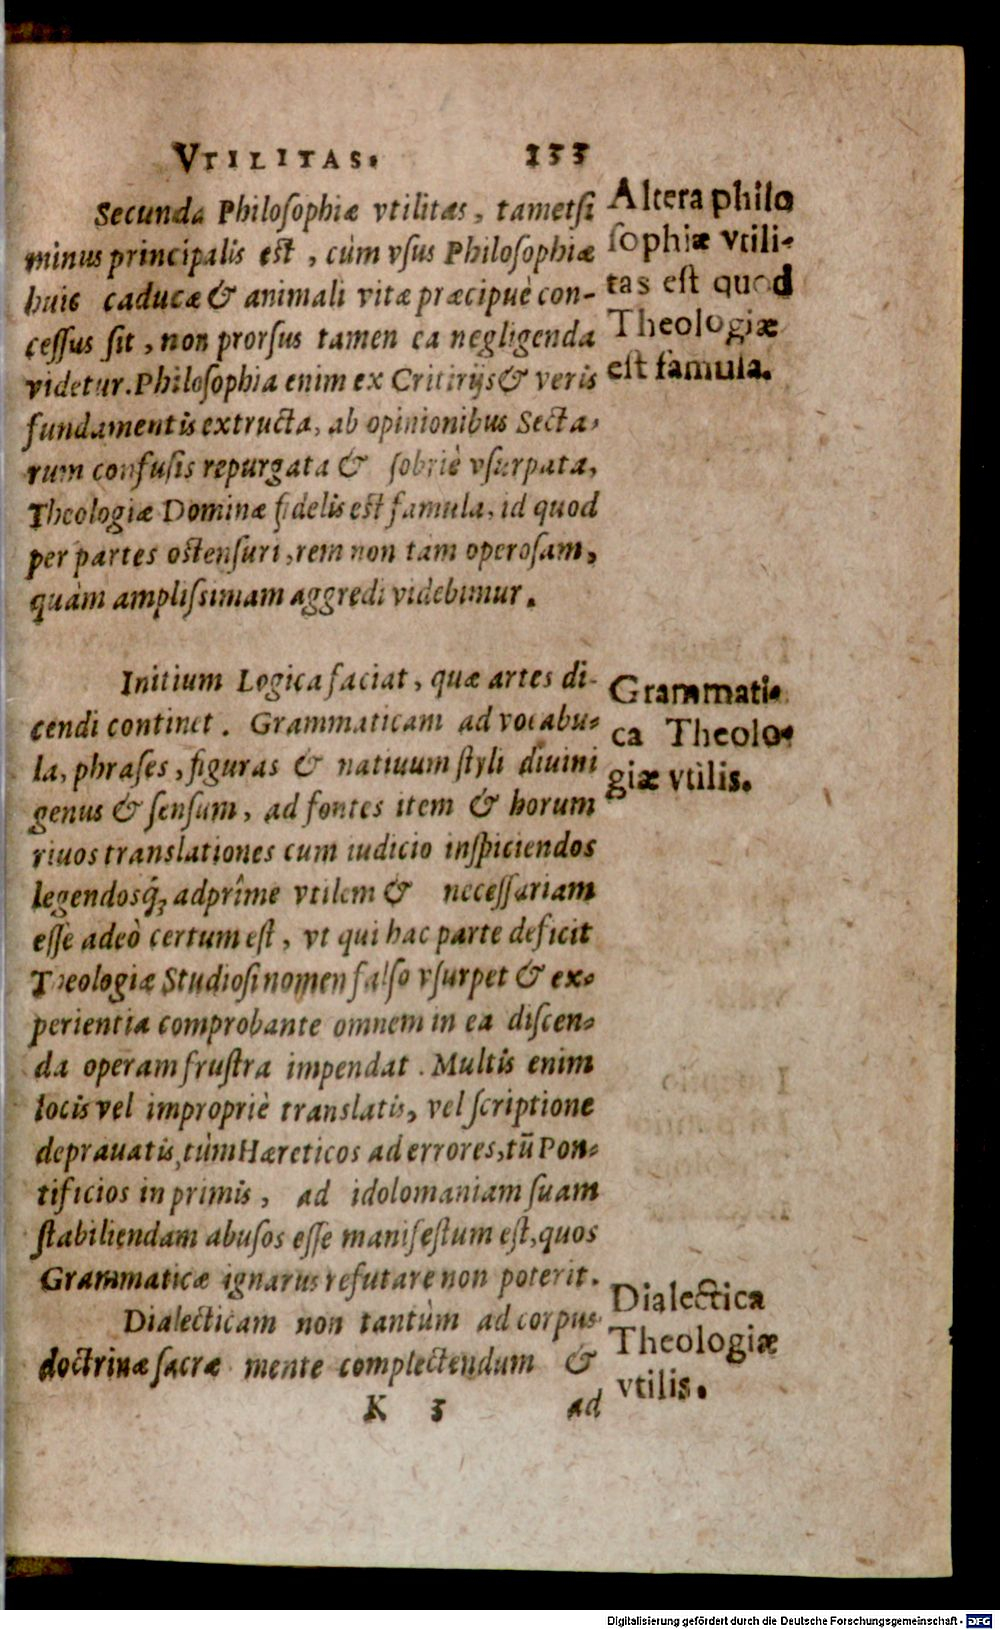 VTILITAS. 155
Secunda Philoſophiæ vtilitas, tametſi
minus principalis eſt, cùm vſus Philoſophiæ
huic caducæ & animali vitæ præcipuè con-
ceſſus ſit, non prorſus tamen ea negligenda
videtur. Philoſophia enim ex Critirijs & veris
fundamentis extructa, ab opinionibus Secta-
rum confuſis repurgata & ſobriè vſurpata,
Theologiæ Dominæ fidelis eſt famula, id quod
per partes oſtenſuri, rem non tam operoſam,
quàm ampliſsimam aggredi videbimur.
Altera philo
ſophiæ vtili-
tas eſt quod
Theologiæ
eſt famula.
Initium Logica faciat, quæ artes di-
cendi continet. Grammaticam ad vocabu-
la, phraſes, figuras & natiuum ſtyli diuini
genus & ſenſum, ad fontes item & horum
riuos translationes cum iudicio inſpiciendos
legendosq́; adprîme vtilem & neceſſariam
eſſe adeò certum eſt, vt qui hac parte deficit
Theologiæ Studioſi nomen falſo vſurpet & ex-
perientia comprobante omnem in ea diſcen-
da operam fruſtra impendat. Multis enim
locis vel impropriè translatis, vel ſcriptione
deprauatis, tùm Hæreticos ad errores, tū Pon-
tificios in primis, ad idolomaniam ſuam
ſtabiliendam abuſos eſſe manifeſtum eſt, quos
Grammaticæ ignarus refutare non poterit.
Grammati-
ca Theolo-
giæ vtilis.
Dialecticam non tantùm ad corpus
doctrinæ ſacræ mente complectendum &
Dialectica
Theologiæ
vtilis.
K 3 ad
Digitalisierung gefördert durch die Deutsche Forschungsgemeinschaft - DFG